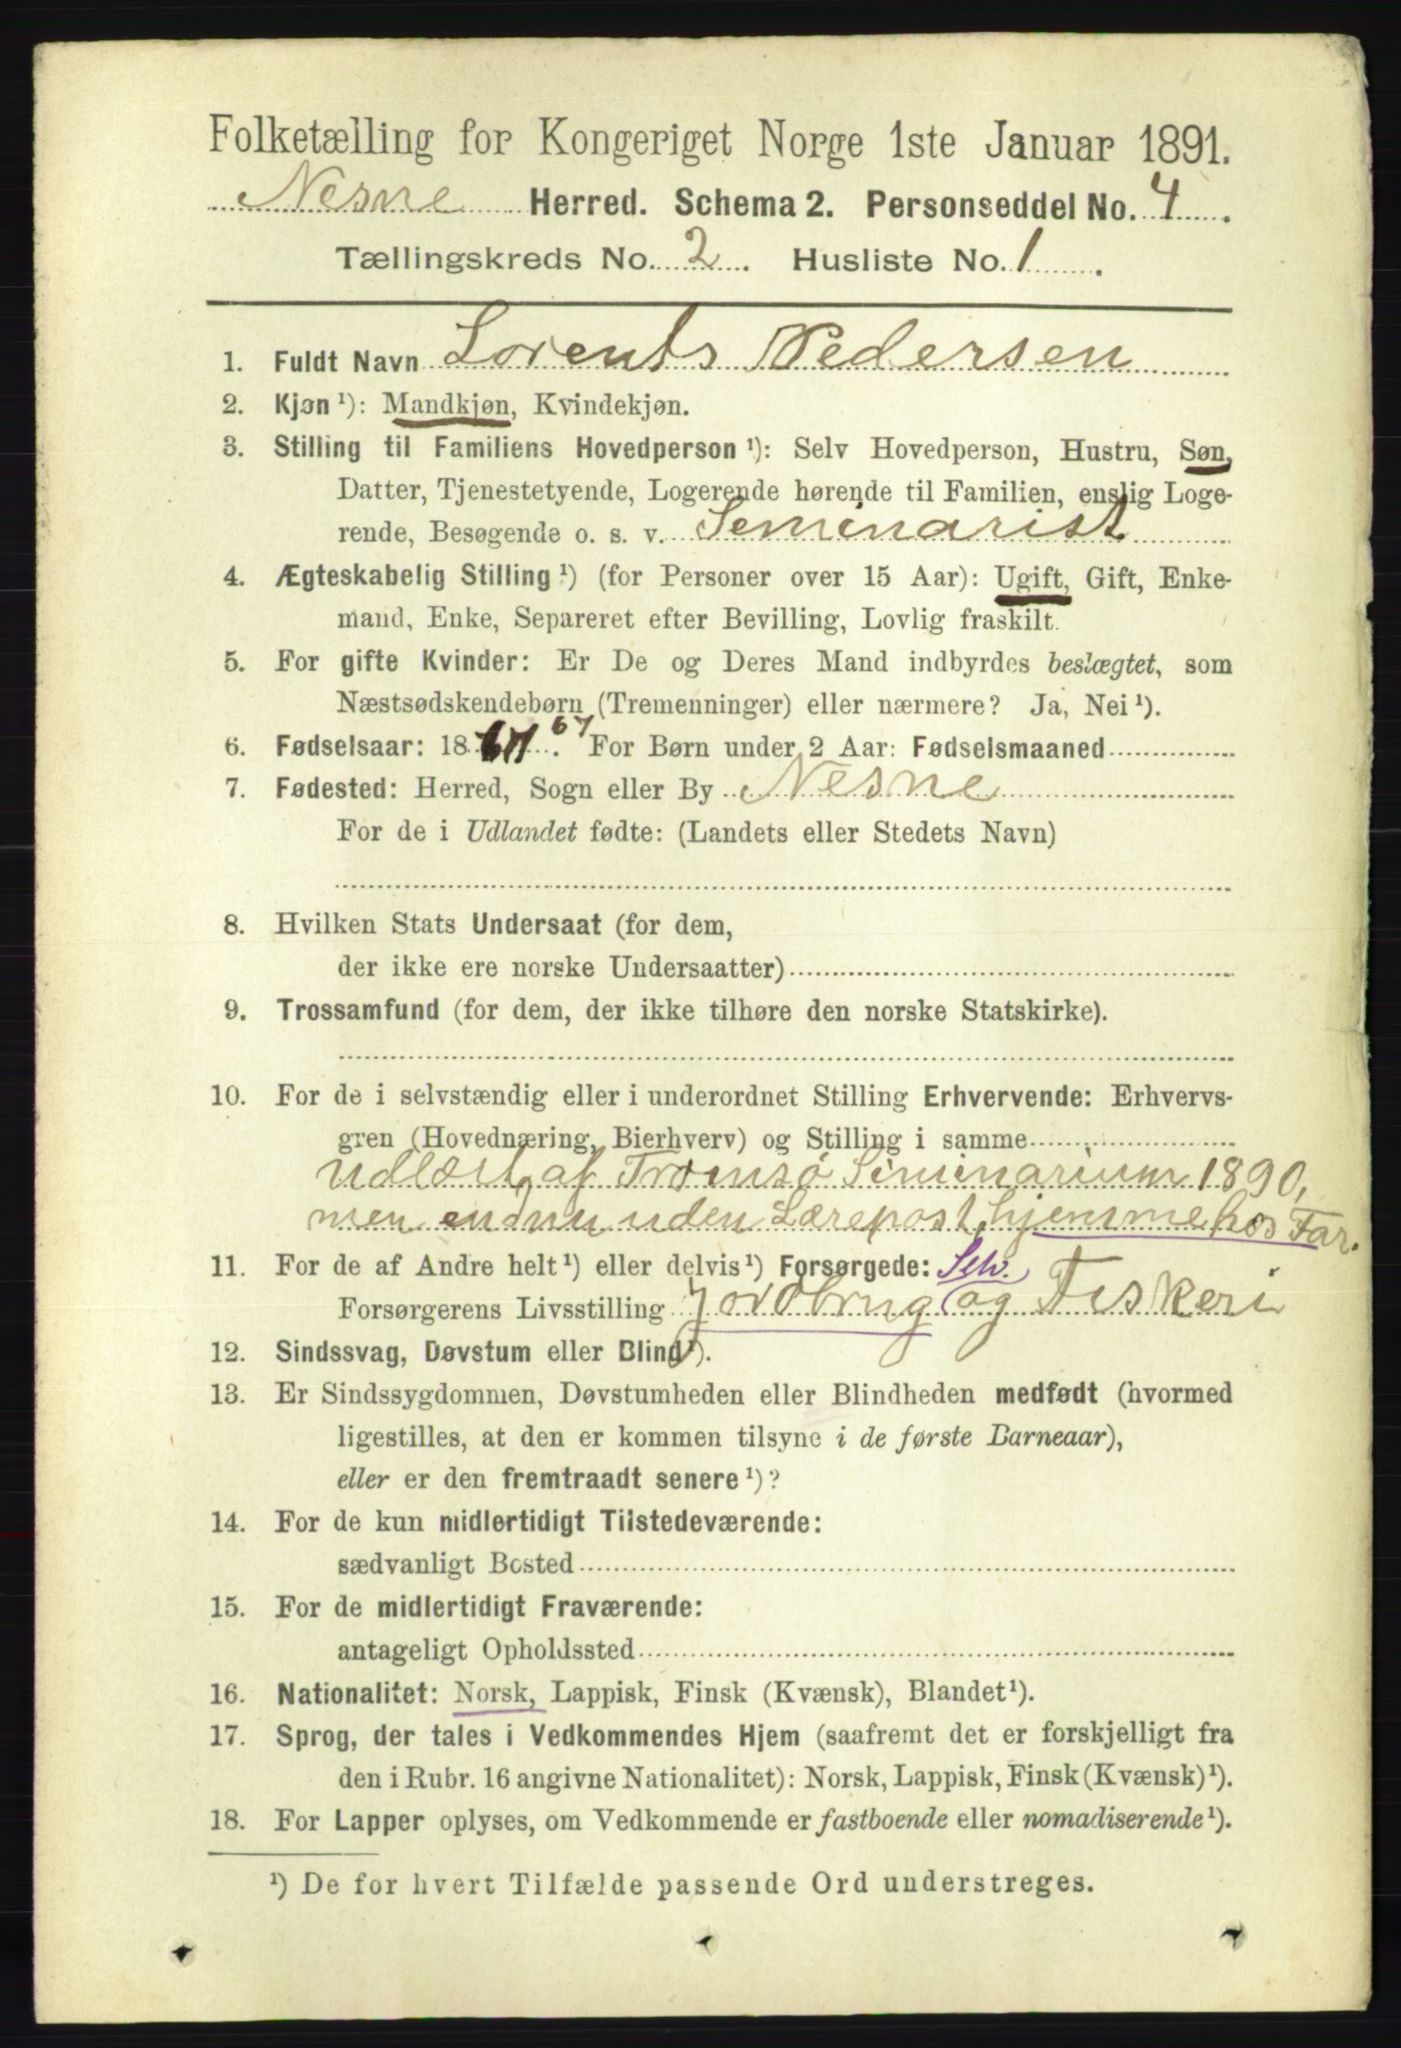 Folketælling for Kongeriget Norge 1ste Januar 1891.
Nesne Herred. Schema 2. Personseddel No. 4.
Tællingskreds No. 2. Husliste No. 1.
1. Fuldt Navn Lorents Pedersen
2. Kjøn ¹): Mandkjøn, Kvindekjøn.
3. Stilling til Familiens Hovedperson ¹): Selv Hovedperson, Hustru, Søn,
Datter, Tjenestetyende, Logerende hørende til Familien, enslig Loge-
rende, Besøgende o. s. v. Seminarist
4. Ægteskabelig Stilling ¹) (for Personer over 15 Aar): Ugift, Gift, Enke-
mand, Enke, Separeret efter Bevilling, Lovlig fraskilt.
5. For gifte Kvinder: Er De og Deres Mand indbyrdes beslægtet, som
Næstsødskendebørn (Tremenninger) eller nærmere? Ja, Nei ¹).
6. Fødselsaar: 1867. 67 For Børn under 2 Aar: Fødselsmaaned
7. Fødested: Herred, Sogn eller By Nesne
For de i Udlandet fødte: (Landets eller Stedets Navn)
8. Hvilken Stats Undersaat (for dem,
der ikke ere norske Undersaatter)
9. Trossamfund (for dem, der ikke tilhøre den norske Statskirke).
10. For de i selvstændig eller i underordnet Stilling Erhvervende: Erhvervs-
gren (Hovednæring, Bierhverv) og Stilling i samme
udlært af Tromsø Siminarium 1890,
men endnu uden Lærepost, hjemme hos Far.
11. For de af Andre helt ¹) eller delvis ¹) Forsørgede: Selv.
Forsørgerens Livsstilling Jordbrug og Fiskeri
12. Sindssvag, Døvstum eller Blind ¹).
13. Er Sindssygdommen, Døvstumheden eller Blindheden medfødt (hvormed
ligestilles, at den er kommen tilsyne i de første Barneaar),
eller er den fremtraadt senere ¹)?
14. For de kun midlertidigt Tilstedeværende:
sædvanligt Bosted
15. For de midlertidigt Fraværende:
antageligt Opholdssted
16. Nationalitet: Norsk, Lappisk, Finsk (Kvænsk), Blandet ¹).
17. Sprog, der tales i Vedkommendes Hjem (saafremt det er forskjelligt fra
den i Rubr. 16 angivne Nationalitet): Norsk, Lappisk, Finsk (Kvænsk) ¹).
18. For Lapper oplyses, om Vedkommende er fastboende eller nomadiserende ¹).
¹) De for hvert Tilfælde passende Ord understreges.